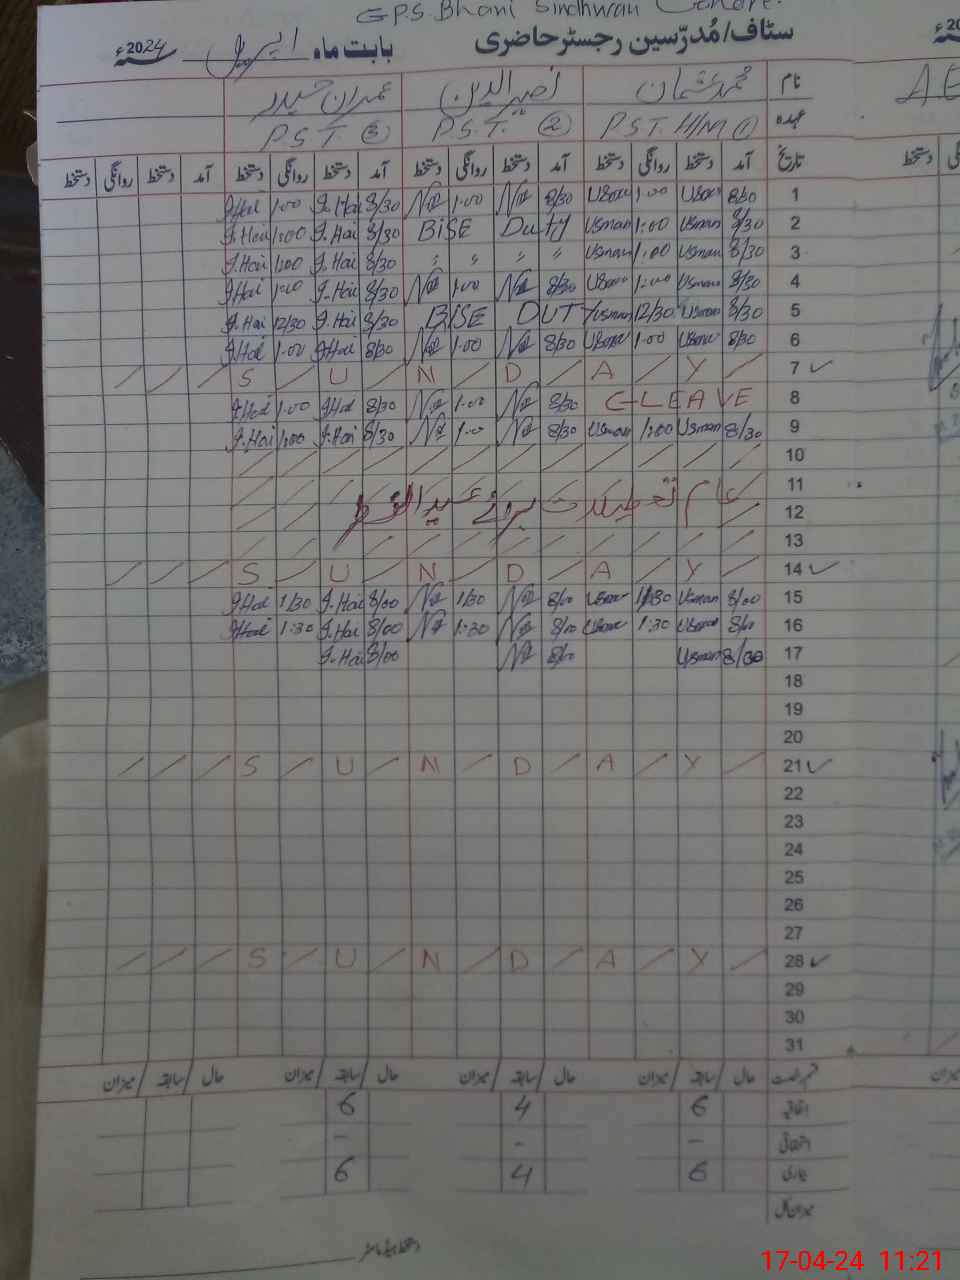 GPS Bhani Sindhwan
سٹاف/مُدرّسین رجسٹر حاضری بابت ماہ اپریل 2024ء
نام محمد عثمان نصیر الدین عمران حیدر
عہدہ P.S.T. H/M (1) P.S.T. (2) P.S.T. (3)
تاریخ آمد دستخط روانگی دستخط آمد دستخط روانگی دستخط آمد دستخط روانگی دستخط آمد دستخط روانگی دستخط
1 8/30 Usman 1:00 Usman 8/30 1:00 8/30 I.Hai 1:00 I.Hai
2 8/30 Usman 1:00 Usman BISE Duty 8/30 I.Hai 1:00 I.Hai
3 8/30 Usman 1:00 Usman " " " " 8/30 I.Hai 1:00 I.Hai
4 8/30 Usman 1:00 Usman 8/30 1:00 8/30 I.Hai 1:00 I.Hai
5 8/30 Usman 12/30 Usman BISE DUTY 8/30 I.Hai 12/30 I.Hai
6 8/30 Usman 1:00 Usman 8/30 1:00 8/30 I.Hai 1:00 I.Hai
7 ✓ S U N D A Y
8 C-LEAVE 8/30 1:00 8/30 I.Hai 1:00 I.Hai
9 8/30 Usman 1:00 Usman 8/30 1:00 8/30 I.Hai 1:00 I.Hai
10
11
عام تعطیلات برائے عید الفطر
12
13
14 ✓ S U N D A Y
15 8/00 Usman 1/30 Usman 8/00 1/30 8/00 I.Hai 1/30 I.Hai
16 8/00 Usman 1:30 Usman 8/00 1:30 8/00 I.Hai 1:30 I.Hai
17 8/00 Usman 8/00 8/00 I.Hai
18
19
20
21 ✓ S U N D A Y
22
23
24
25
26
27
28 ✓ S U N D A Y
29
30
31
قسم رخصت حال / سابقہ / میزان حال / سابقہ / میزان حال / سابقہ / میزان حال / سابقہ / میزان
اتفاقیہ 6 4 6
استحقاقی - - -
بیماری 6 4 6
میزان کل
دستخط ہیڈ ماسٹر
17-04-24 11:21